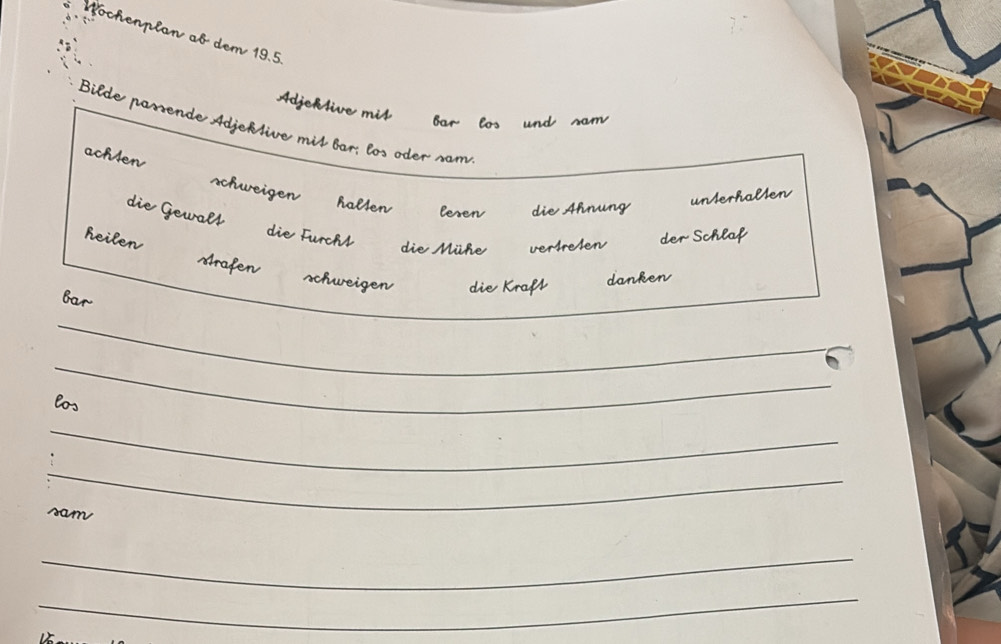 Wochenplan ab dem 19.5.
Adjektive mit bar los und sam
Bilde passende Adjektive mit bar, los oder sam.
achten schweigen halten lesen die Ahnung unterhalten
die Gewalt die Furcht die Mühe vertreten der Schlaf
heilen strafen schweigen die Kraft danken
bar
los
sam